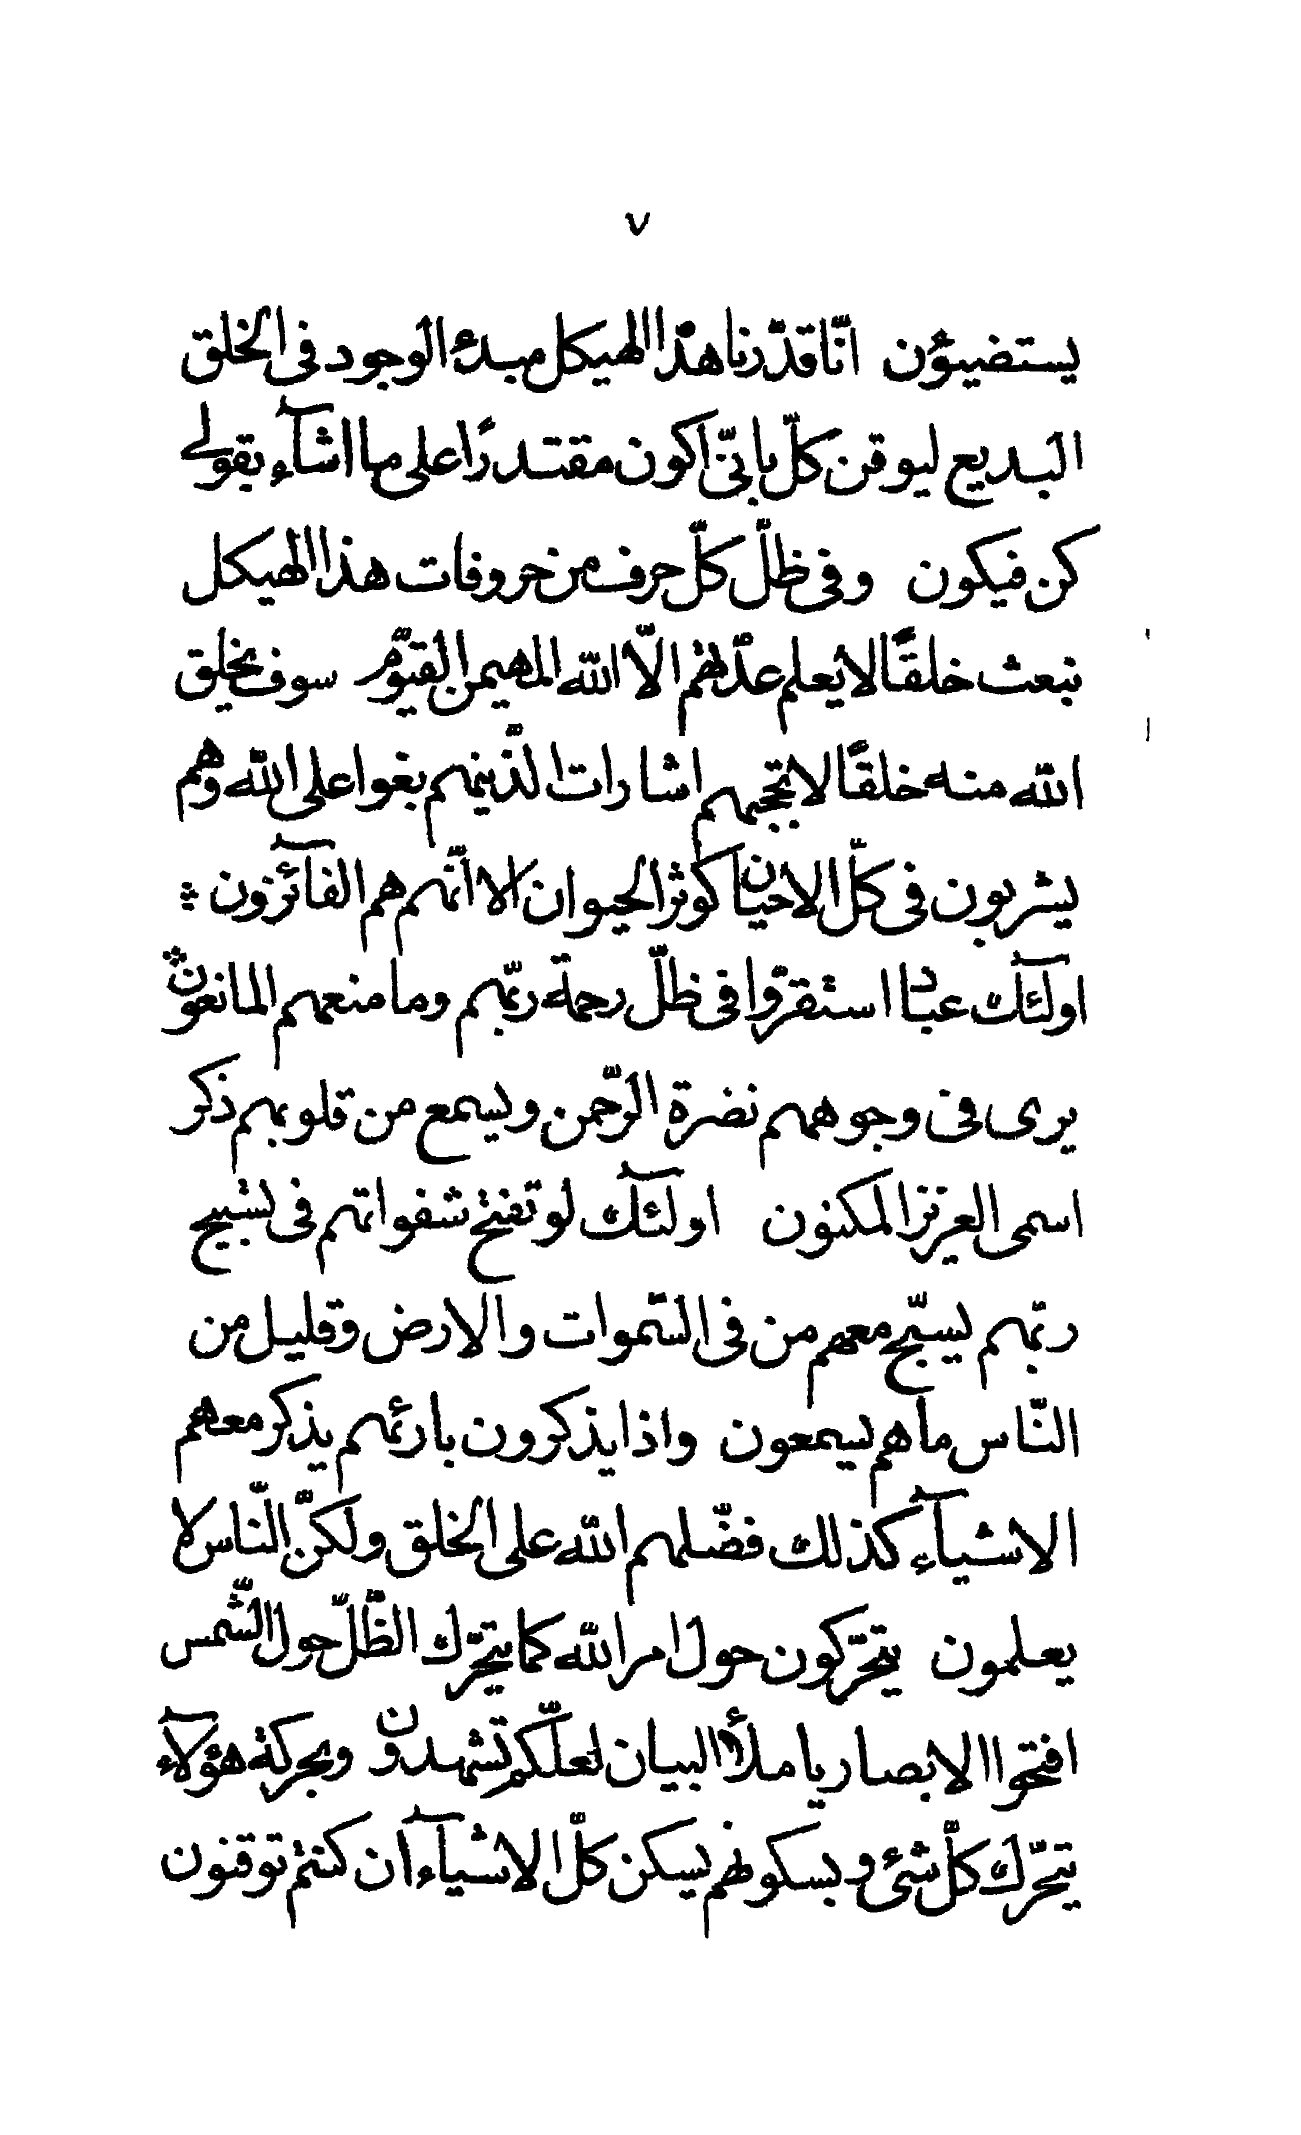 ٧
يستضيئون انّا قدّرنا هذا الهيكل مبدء الوجود فى الخلق
البديع ليوقن كلّ بانّى اكون مقتدرًا على ما اشآء بقولى
كن فيكون وفى ظلّ كلّ حرف من حروفات هذا الهيكل
نبعث خلقًا لا يعلم عدّتهم الّا الله المهيمن القيّوم سوف يخلق
الله منه خلقًا لا تحجبهم اشارات الّذينهم بغوا على الله وهم
يشربون فى كلّ الاحيان كوثر الحيوان الا انّهم هم الفآئزون ؞
اولئك عباد استقرّوا فى ظلّ رحمة ربّهم وما منعهم المانعون
يرى فى وجوههم نضرة الرّحمن ويسمع من قلوبهم ذكر
اسمى العزيز المكنون اولئك لو تفتح شفواتهم فى تسبيح
ربّهم ليسبّح معهم من فى السّموات والارض وقليل من
النّاس ما هم ليسمعون واذا يذكرون بارئهم يذكر معهم
الاشيآء كذلك فضّلهم الله على الخلق ولكنّ النّاس لا
يعلمون يتحرّكون حول امر الله كما يتحرّك الظّلّ حول الشّمس
افتحوا الابصار يا ملأ البيان لعلّكم تشهدون وبحركة هؤلآء
يتحرّك كلّ شئ وبسكونهم يسكن كلّ الاشيآء ان كنتم توقنون